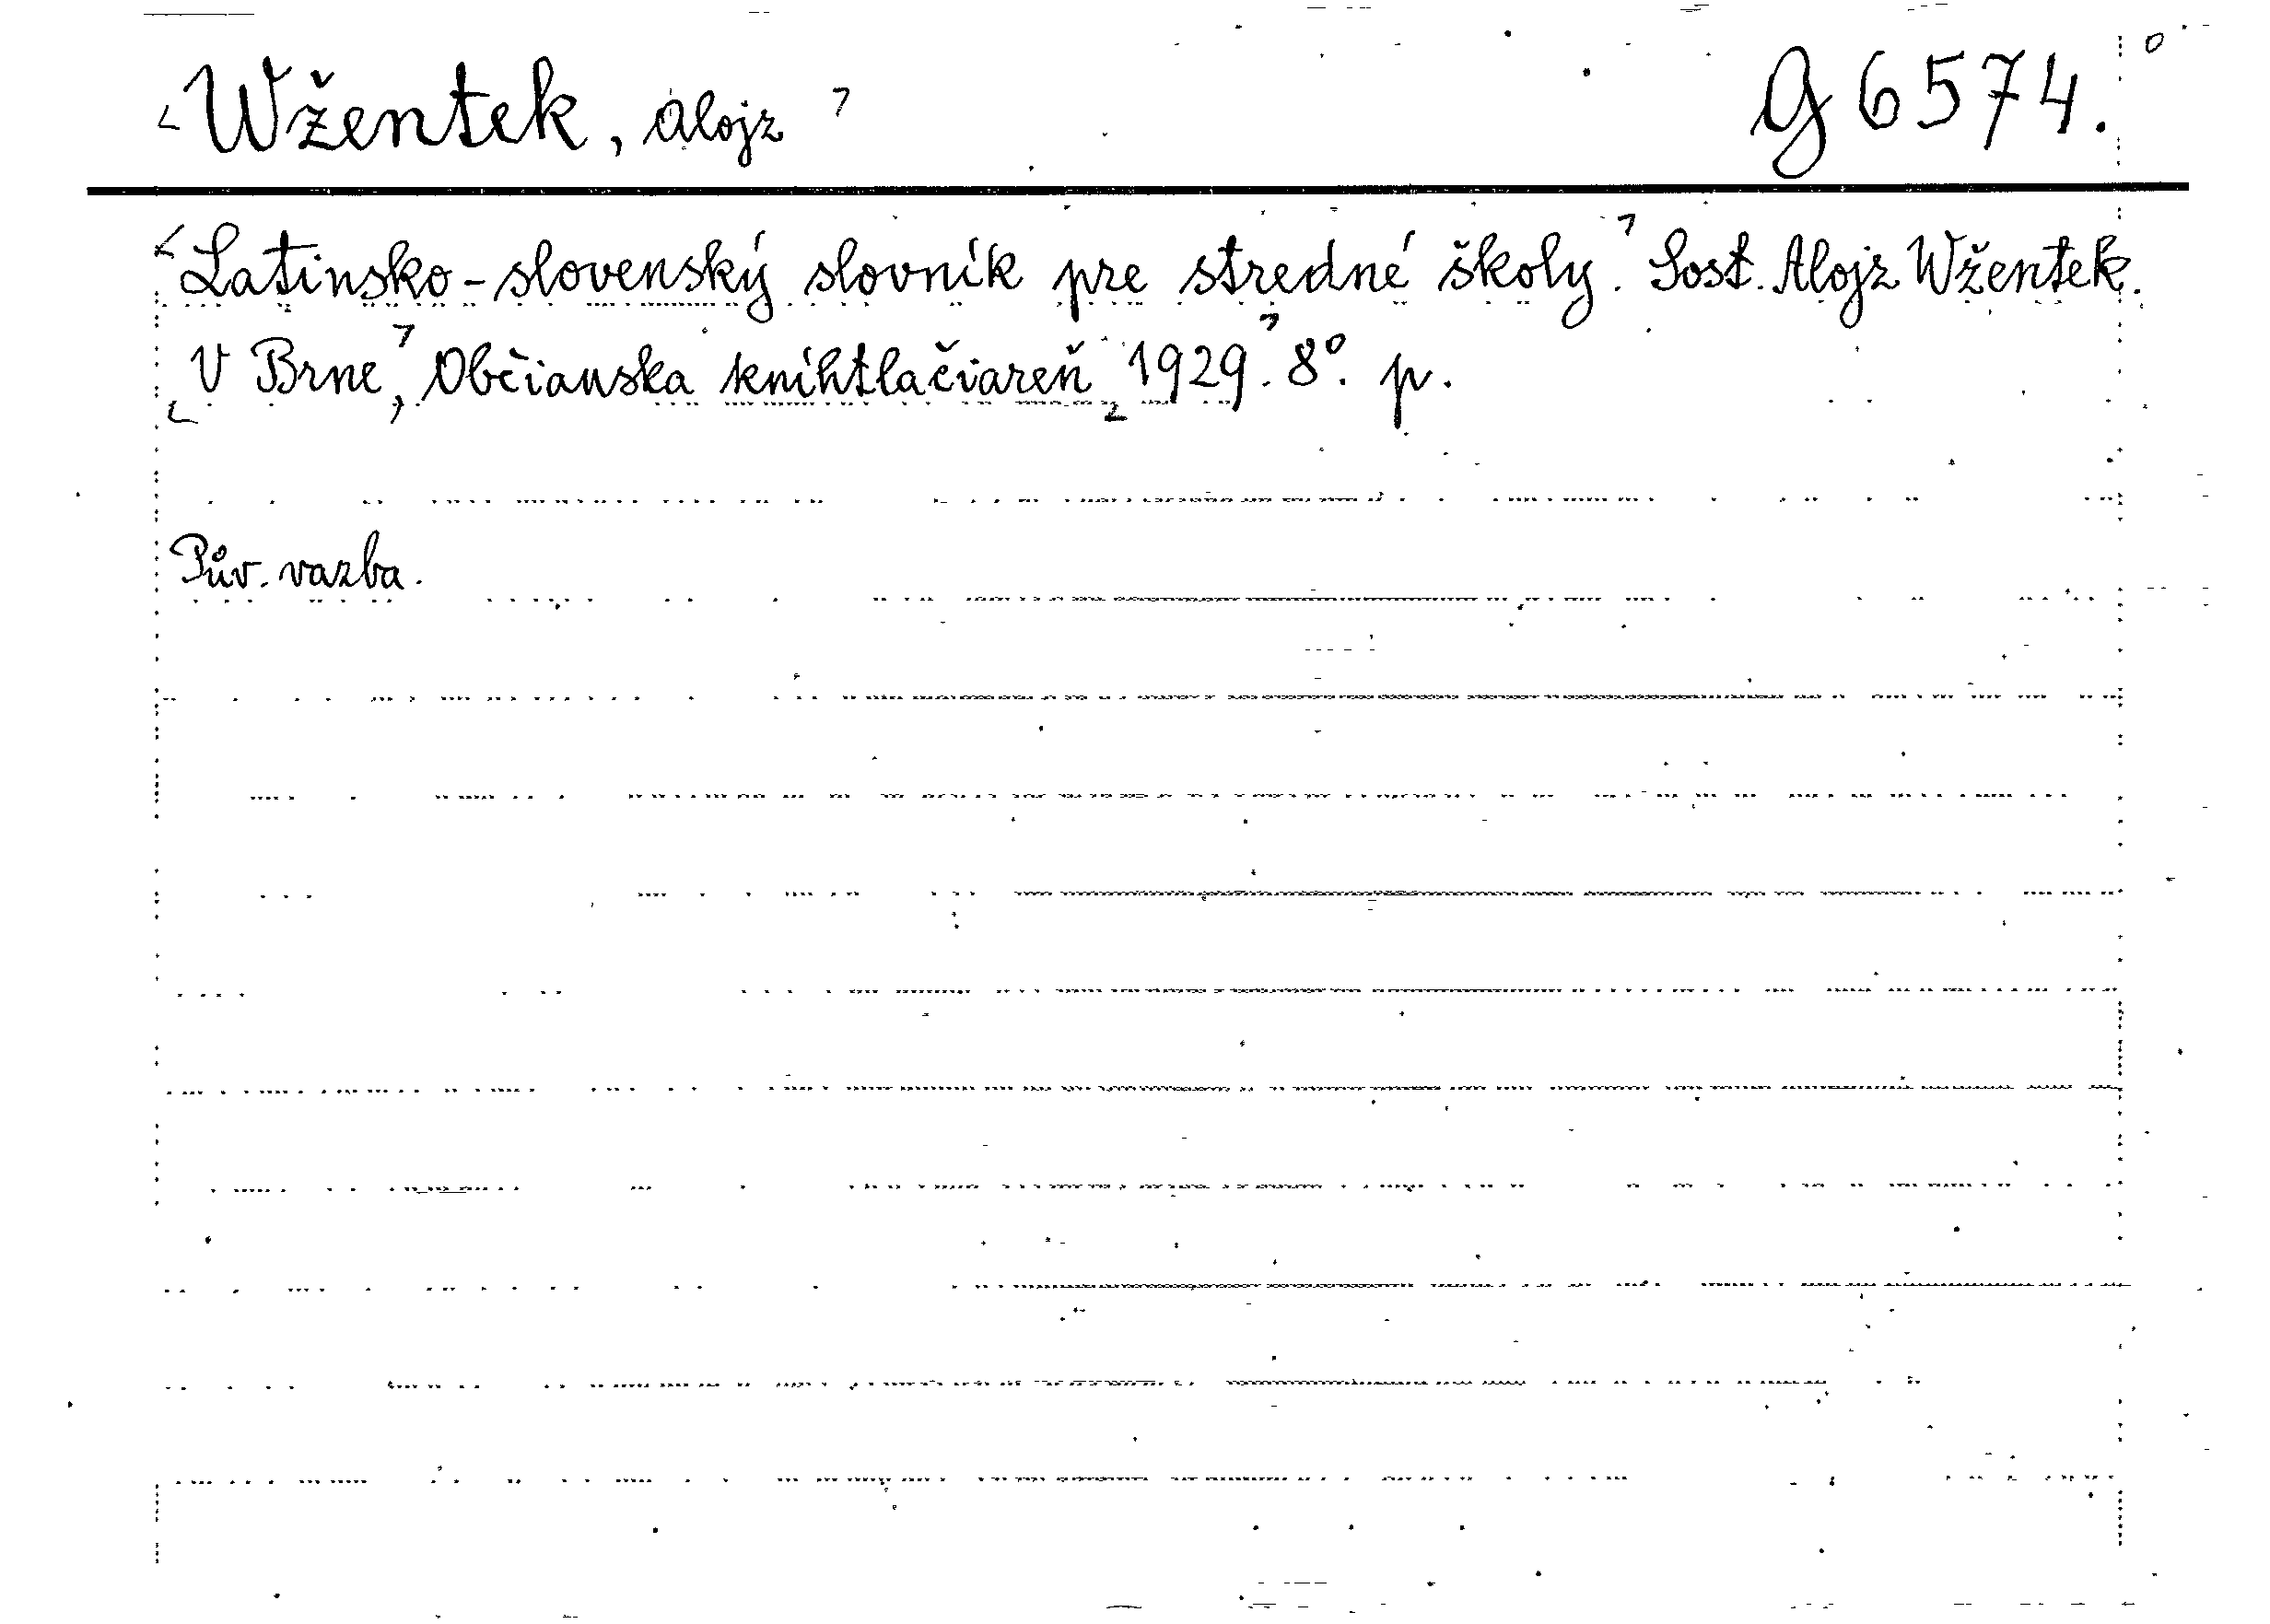 Wžentek, Alojz G 6574.
Latinsko-slovenský slovník pre stredné školy. Sost. Alojz Wžentek.
V Brne, Občianska knihtlačiareň 1929. 8°. p.
Pův. vazba.